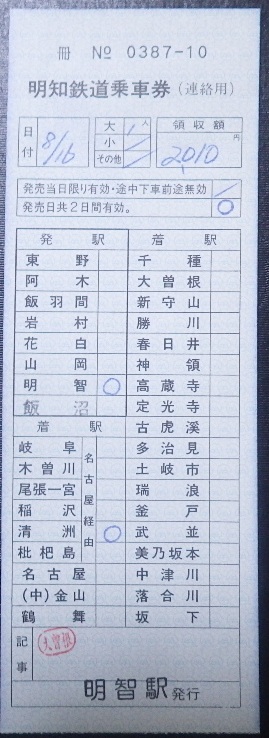 冊 № 0387-10
明知鉄道乗車券(連絡用)
日付 8/16 大 1人 小 その他 領収額 2,010円
発売当日限り有効・途中下車前途無効
発売日共2日間有効。 ○
発駅 着駅
東野 千種
阿木 大曽根
飯羽間 新守山
岩村 勝川
花白 春日井
山岡 神領
明智 ○ 高蔵寺
飯沼 定光寺
着駅 古虎溪
岐阜 名古屋経由 多治見
木曽川 土岐市
尾張一宮 瑞浪
稲沢 釜戸
清洲 ○ 武並
枇杷島 美乃坂本
名古屋 中津川
(中)金山 落合川
鶴舞 坂下
記事 大曽根
明智駅発行